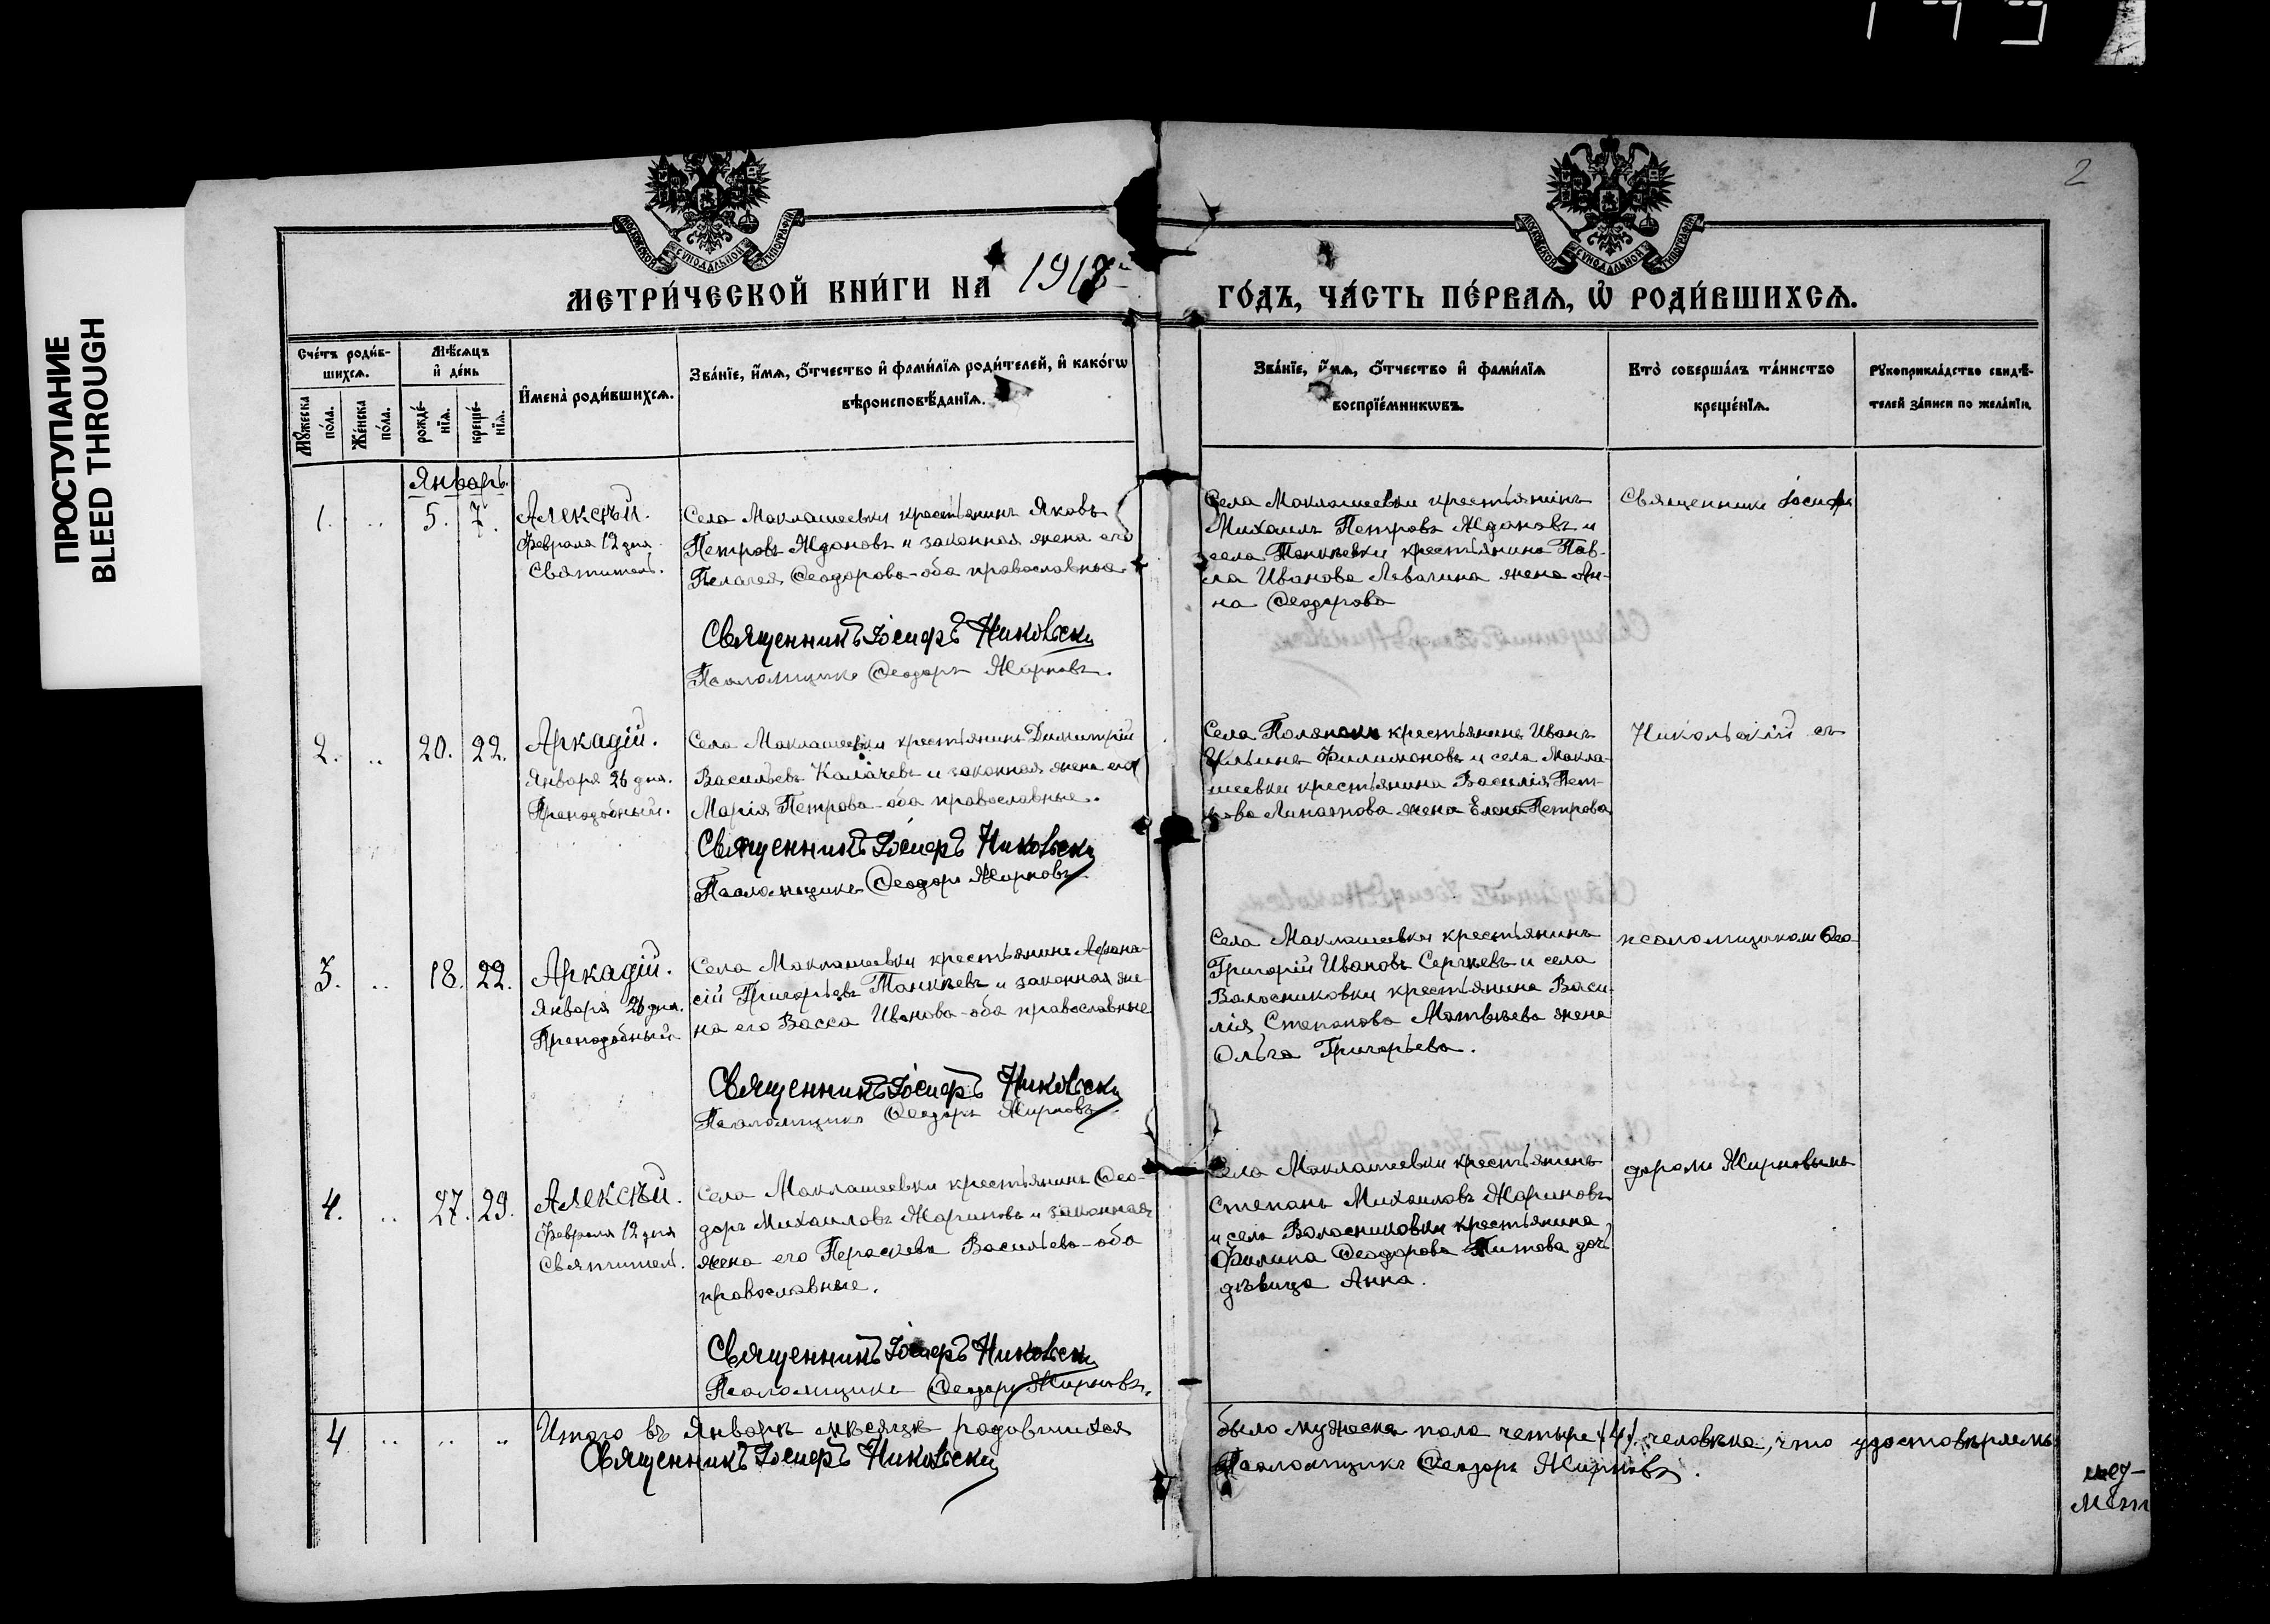 ПРОСТУПАНИЕ
BLEED THROUGH
2
МОСКОВСКОЙ СѴНОДАЛЬНОЙ ТИПОГРАФІИ
МОСКОВСКОЙ СѴНОДАЛЬНОЙ ТИПОГРАФІИ
МЕТРИ́ЧЕСКОЙ КНИ́ГИ НА 1918 ГО́ДЪ, ЧА́СТЬ ПЕ́РВАѦ, Ѡ҆ РОДИ́ВШИХСѦ.
Сче́тъ роди́в-
шихсѧ.
Мꙋ́жеска по́ла.
Же́нска по́ла.
Мѣ́сѧцъ и҆ де́нь
рожде́-
нїѧ.
креще́-
нїѧ.
И҆мена̀ роди́вшихсѧ.
Зва́нїе, и҆́мѧ, ѻ҆́тчество и҆ фами́лїѧ роди́телей, и҆ како́гѡ
вѣроисповѣ́данїѧ.
Зва́нїе, и҆́мѧ, ѻ҆́тчество и҆ фами́лїѧ
воспрїе́мникѡвъ.
Кто̀ соверша́лъ та́инство
креще́нїѧ.
Рꙋкоприкла́дство свидѣ́-
телей за́писи по жела́нїю.
Январь.
1. .. 5. 7. Алексѣй.
Февраля 12 дня.
Святитель.
Села Маклашеевки крестьянинъ Яковъ
Петровъ Ждановъ и законная жена его
Пелагея Ѳеодорова - оба православные.
Священникъ Іосифъ Никольскій
Псаломщикъ Ѳеодоръ Жирновъ.
Села Маклашеевки крестьянинъ
Михаилъ Петровъ Ждановъ и
села Танкѣевки крестьянина Пав-
ла Иванова Левагина жена Ан-
на Ѳеодорова
Священникъ Іосифъ
2. .. 20. 22. Аркадій.
Января 26 дня.
Преподобный.
Села Маклашеевки крестьянинъ Димитрій
Васильевъ Калачевъ и законная жена его
Марія Петрова - оба православные.
Священникъ Іосифъ Никольскій
Псаломщикъ Ѳеодоръ Жирновъ.
Села Полянокъ крестьянинъ Иванъ
Ильинъ Филимоновъ и села Макла-
шеевки крестьянина Василія Пет-
рова жена Елена Петрова
Никольскій съ
3. .. 18. 22. Аркадій.
Января 26 дня.
Преподобный.
Села Маклашеевки крестьянинъ Афана-
сій Григорьевъ Танкѣевъ и законная же-
на его Васса Иванова - оба православные
Священникъ Іосифъ Никольскій
Псаломщикъ Ѳеодоръ Жирновъ.
Села Маклашеевки крестьянинъ
Григорій Ивановъ Сергѣевъ и села
Волосниковки крестьянина Васи-
лія Степанова Матвѣева жена
Ольга Григорьева.
псаломщикомъ Ѳео-
4. .. 27. 29. Алексѣй.
Февраля 12 дня
Святитель.
Села Маклашеевки крестьянинъ Ѳео-
доръ Михаиловъ Жариновъ и законная
жена его Параскева Васильева - оба
православные.
Священникъ Іосифъ Никольскій
Псаломщикъ Ѳеодоръ Жирновъ.
Села Маклашеевки крестьянинъ
Степанъ Михаиловъ Жариновъ
и села Волосниковки крестьянина
Филипа Ѳеодорова Титова дочь
дѣвица Анна.
доромъ Жирновымъ
4 .. .. .. Итого въ Январѣ мѣсяцѣ родившихся было мужеска пола четыре (4) человѣка, что удостовѣряемъ
Священникъ Іосифъ Никольскій
Псаломщикъ Ѳеодоръ Жирновъ.